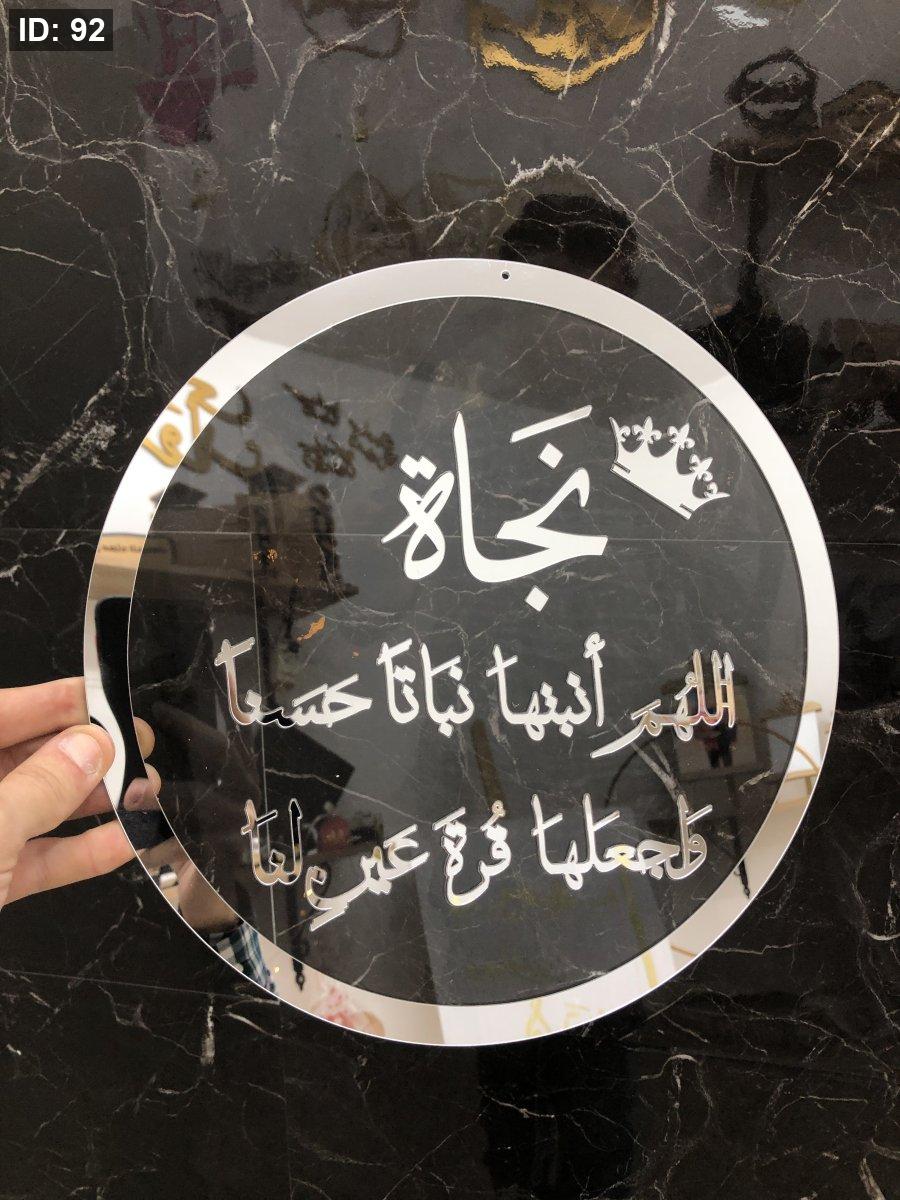 ID: 92
نَجاة
اللهُمَ أنبتها نَبَاتًا حَسَناً
وَاجعَلها قُرةَ عَينٍ لنَا